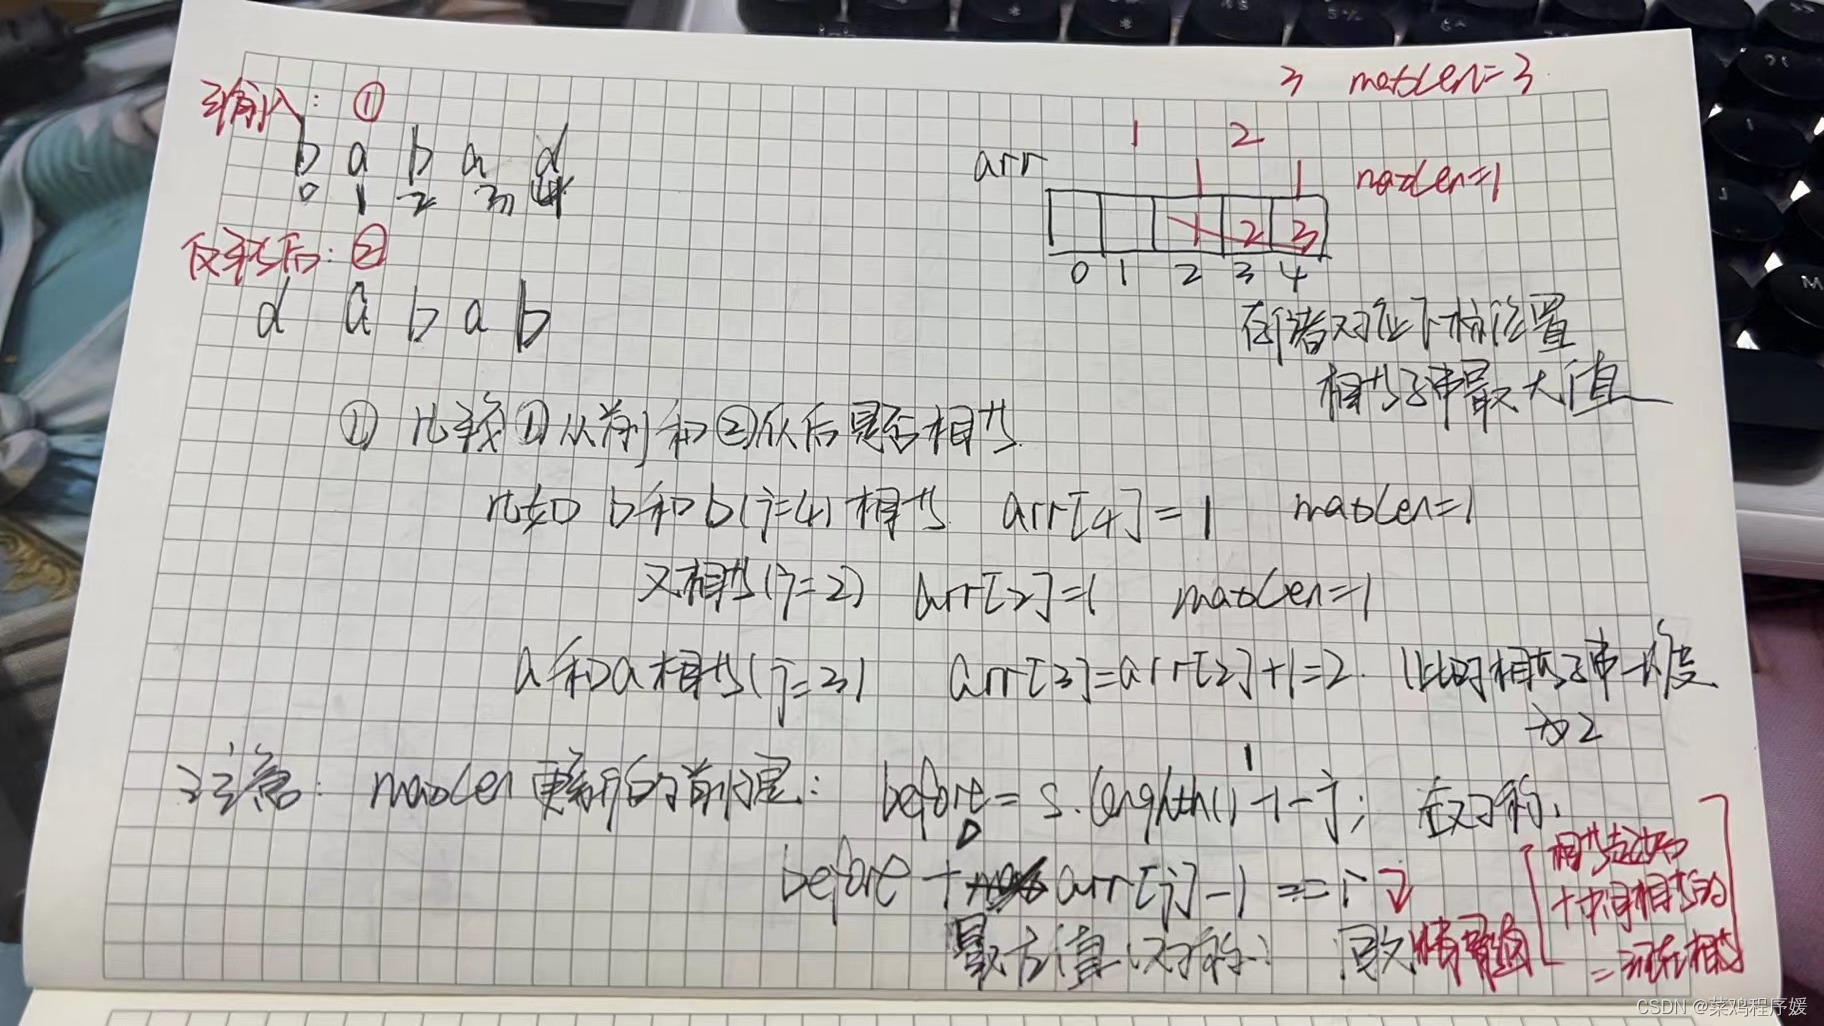 输入: ①
b a b a d
0 1 2 3 4
反转后: ②
d a b a b
3 maxLen=3
1 2
arr 1 1 maxLen=1
1 2 3
0 1 2 3 4
存储对应下标位置
相等子串最大值
① 比较①从前和②从后是否相等
比如 b和b(j=4)相等 arr[4]=1 maxLen=1
又相等(j=2) arr[2]=1 maxLen=1
a和a相等(j=3) arr[3]=arr[2]+1=2. (此时相等子串长度
为2
注意: maxLen更新的前提: before = s.length()-1-j; 在对称.
before + arr[j]-1 == i
相等起始
+中间相等的
=现在相等
CSDN @菜鸡程序媛